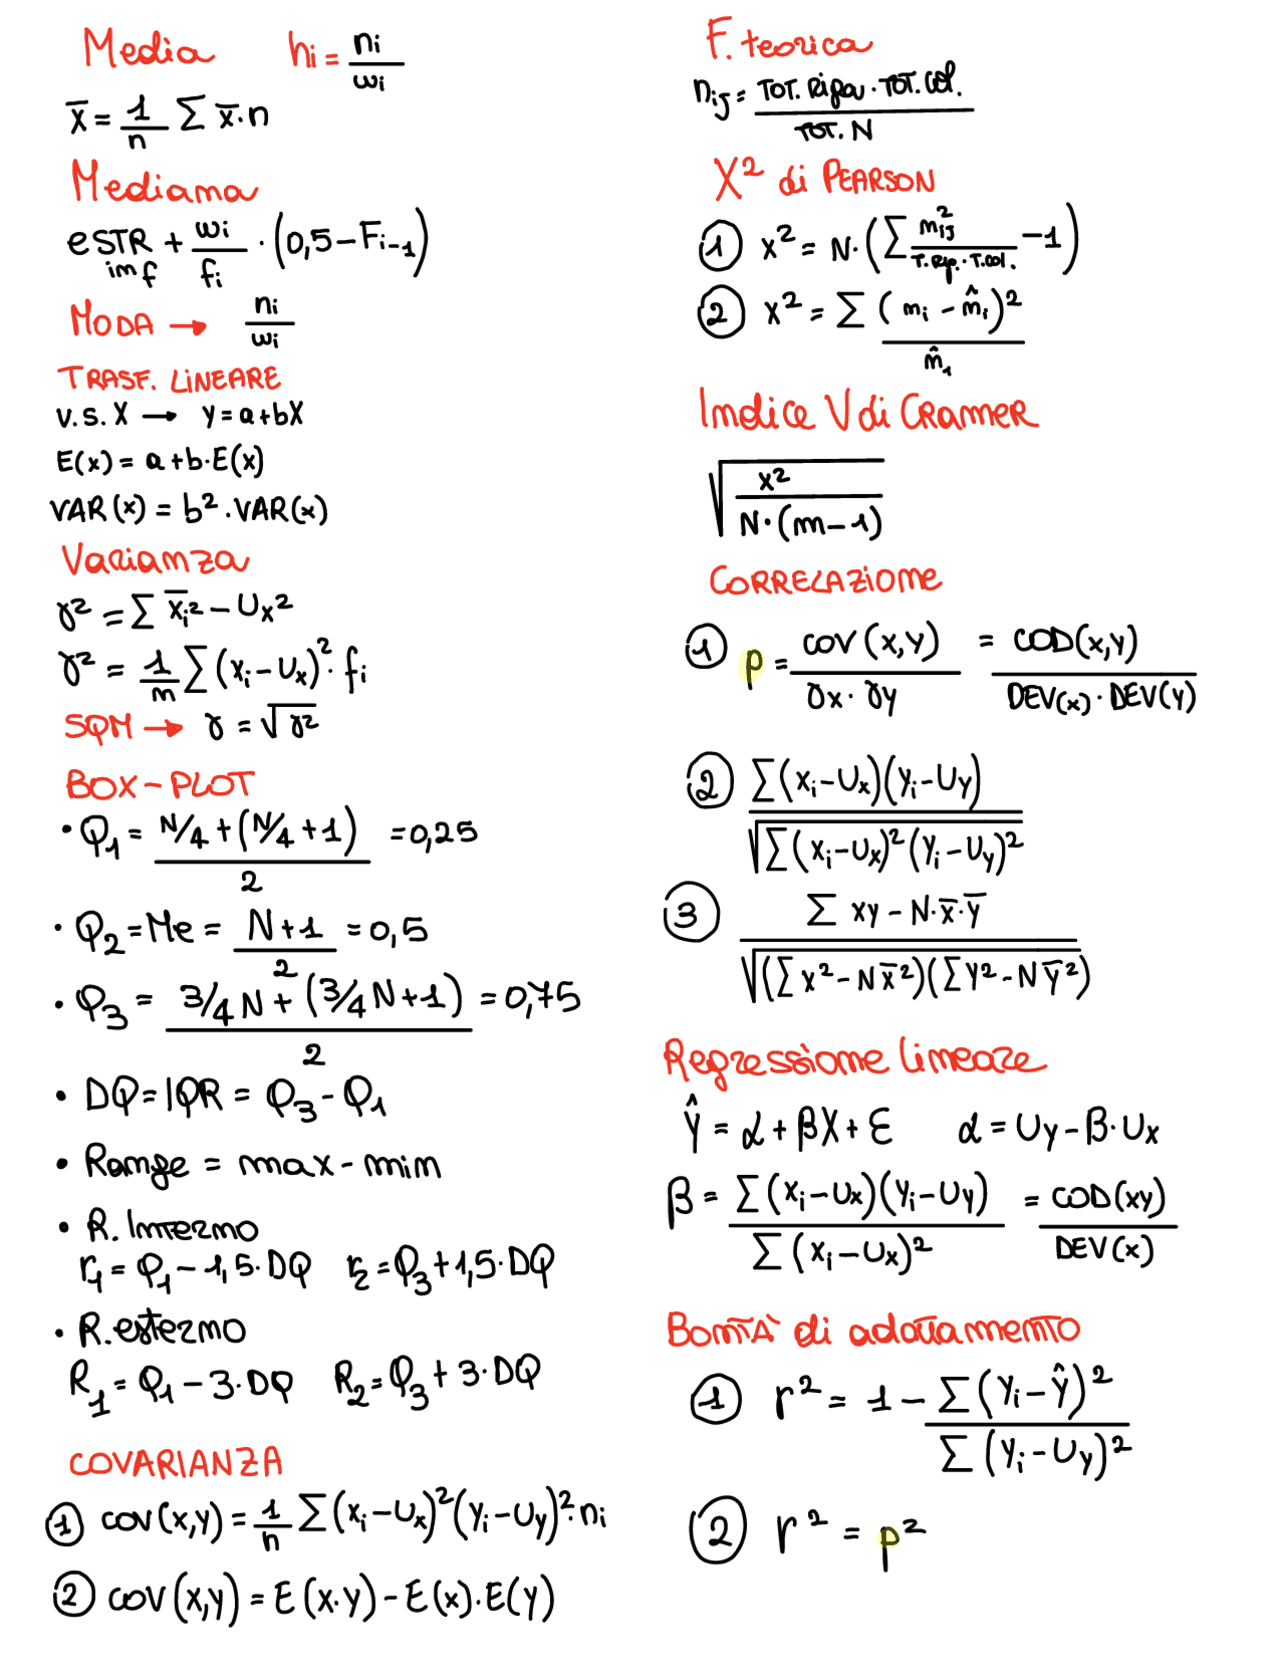 Media hi = ni / wi
x̄ = 1/n ∑ x̄·n
Mediana
eSTR inf + wi/fi · (0,5 − Fi-1)
MODA → ni / wi
TRASF. LINEARE
V.S. X → Y = a + bX
E(x) = a + b·E(x)
VAR(x) = b² · VAR(x)
Varianza
γ² = ∑ x̄i² − Ux²
γ² = 1/n ∑ (xi − Ux)² · fi
SQM → γ = √γ²
BOX-PLOT
• Q1 = (N/4 + (N/4 + 1)) / 2 = 0,25
• Q2 = Me = (N+1) / 2 = 0,5
• Q3 = (3/4 N + (3/4 N + 1)) / 2 = 0,75
• DQ = IQR = Q3 - Q1
• Range = max - min
• R. Interno
r1 = Q1 − 1,5·DQ r2 = Q3 + 1,5·DQ
• R. esterno
R1 = Q1 − 3·DQ R2 = Q3 + 3·DQ
COVARIANZA
① COV(x,y) = 1/n ∑ (xi − Ux)² (yi − Uy)² · ni
② COV(x,y) = E(x·y) − E(x)·E(y)
F. teorica
nij = TOT. Riga · TOT. COL. / TOT. N
X² di PEARSON
① X² = N · (∑ nij² / T.Rig. · T.COL. − 1)
② X² = ∑ (ni − n̂i)² / n̂1
Indice V di CRAMER
√ X² / N·(m−1)
CORRELAZIONE
① ρ = COV(x,y) / γx · γy = COD(x,y) / DEV(x) · DEV(y)
② ∑(xi − Ux)(yi − Uy) / √∑(xi − Ux)² (yi − Uy)²
③ ∑ xy − N·x̄·ȳ / √(∑x² − N x̄²)(∑y² − N ȳ²)
Regressione lineare
Ŷ = α + βX + ε α = Uy − β·Ux
β = ∑(xi − Ux)(yi − Uy) / ∑(xi − Ux)² = COD(xy) / DEV(x)
BONTÀ di adattamento
① r² = 1 − ∑(yi − ŷ)² / ∑(yi − Uy)²
② r² = ρ²